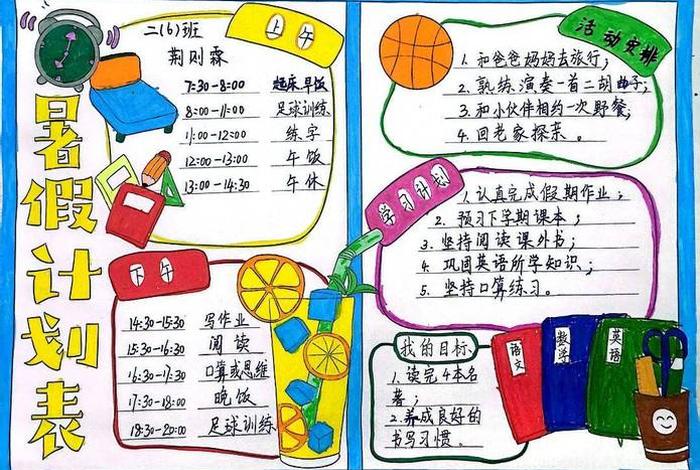 暑假计划表
二(6)班
荆则霖
上午
7:30-8:00 起床早饭
8:00-11:00 足球训练
11:00-12:00 练字
12:00-13:00 午饭
13:00-14:30 午休
下午
14:30-15:30 写作业
15:30-16:30 阅读
16:30-17:30 口算或思维
17:30-18:00 晚饭
18:30-20:00 足球训练
活动安排
1. 和爸爸妈妈去旅行;
2. 熟练演奏一首二胡曲子;
3. 和小伙伴相约一次野餐;
4. 回老家探亲。
学习计划
1. 认真完成假期作业;
2. 预习下学期课本;
3. 坚持阅读课外书;
4. 巩固英语所学知识;
5. 坚持口算练习。
我的目标
1. 读完4本名
著;
2. 养成良好的
书写习惯。
语文
数学
英语